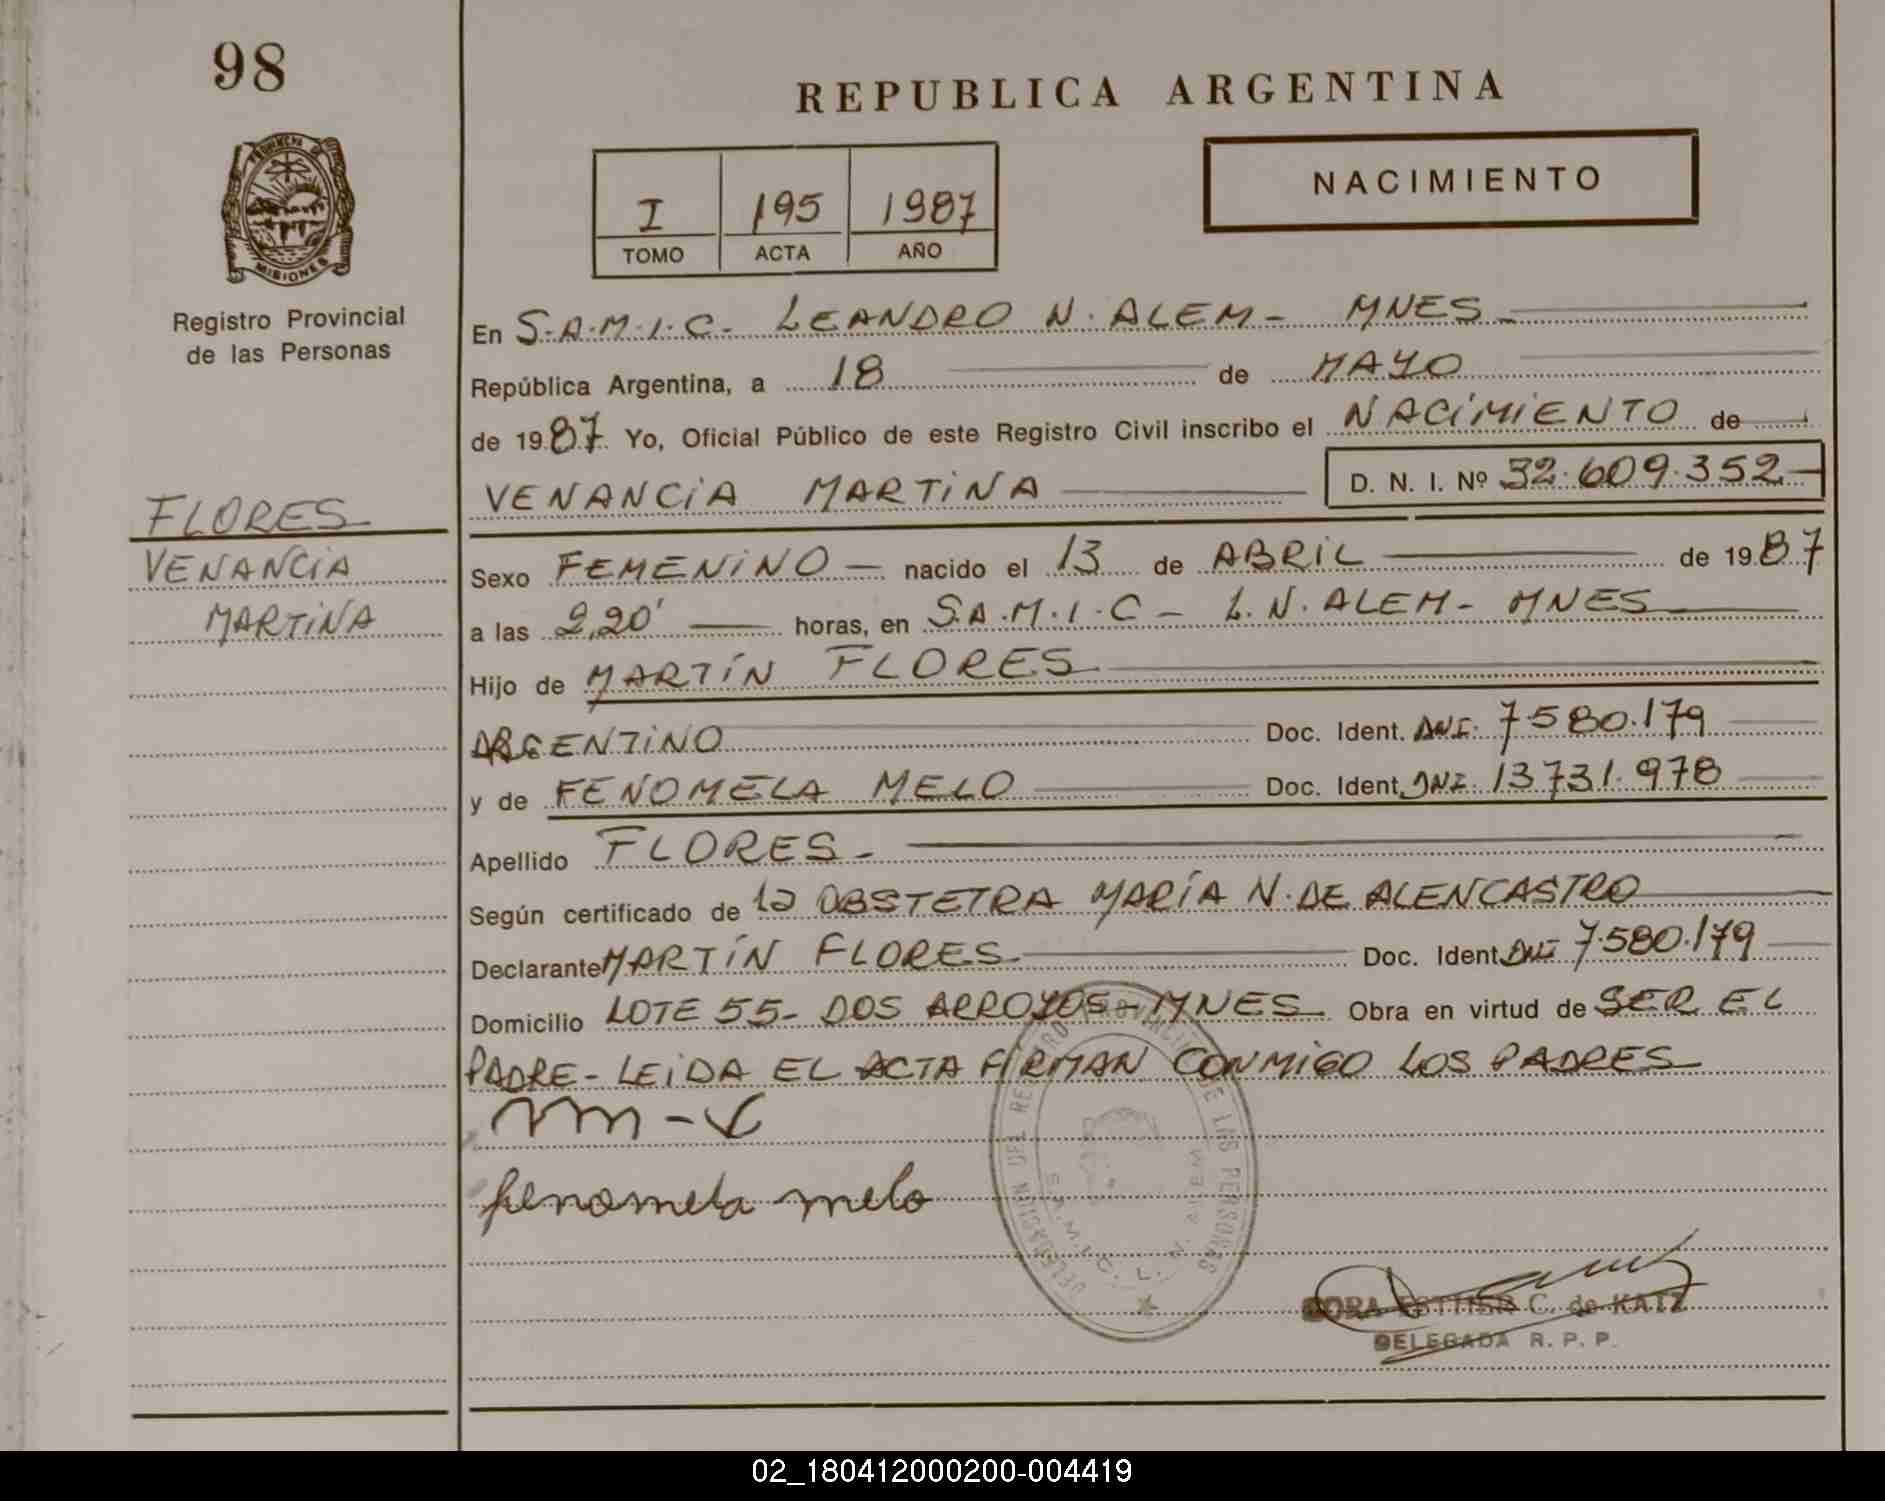 98
REPUBLICA ARGENTINA
PROVINCIA DE
MISIONES
Registro Provincial
de las Personas
I 195 1987
TOMO ACTA AÑO
NACIMIENTO
En S.A.M.I.C. LEANDRO N. ALEM - MNES
República Argentina, a 18 de MAYO
de 1987. Yo, Oficial Público de este Registro Civil inscribo el NACIMIENTO de
VENANCIA MARTINA D. N. I. Nº 32.609.352
FLORES
VENANCIA
MARTINA
Sexo FEMENINO nacido el 13 de ABRIL de 1987
a las 2,20' horas, en S.A.M.I.C - L.N. ALEM - MNES
Hijo de MARTÍN FLORES
ARGENTINO Doc. Ident. DNI. 7.580.179
y de FENOMELA MELO Doc. Ident. DNI. 13731.978
Apellido FLORES.
Según certificado de la OBSTETRA MARÍA N. DE ALENCASTRO
Declarante MARTÍN FLORES Doc. Ident. DNI 7.580.179
Domicilio LOTE 55 - DOS ARROYOS - MNES Obra en virtud de SER EL
PADRE - LEIDA EL ACTA FIRMAN CONMIGO LOS PADRES
fenomela melo
DELEGACION DEL REGISTRO PROVINCIAL DE LAS PERSONAS
S.A.M.I.C. L. N. ALEM
CORA ESTHER C. de KATZ
DELEGADA R. P. P.
02_180412000200-004419